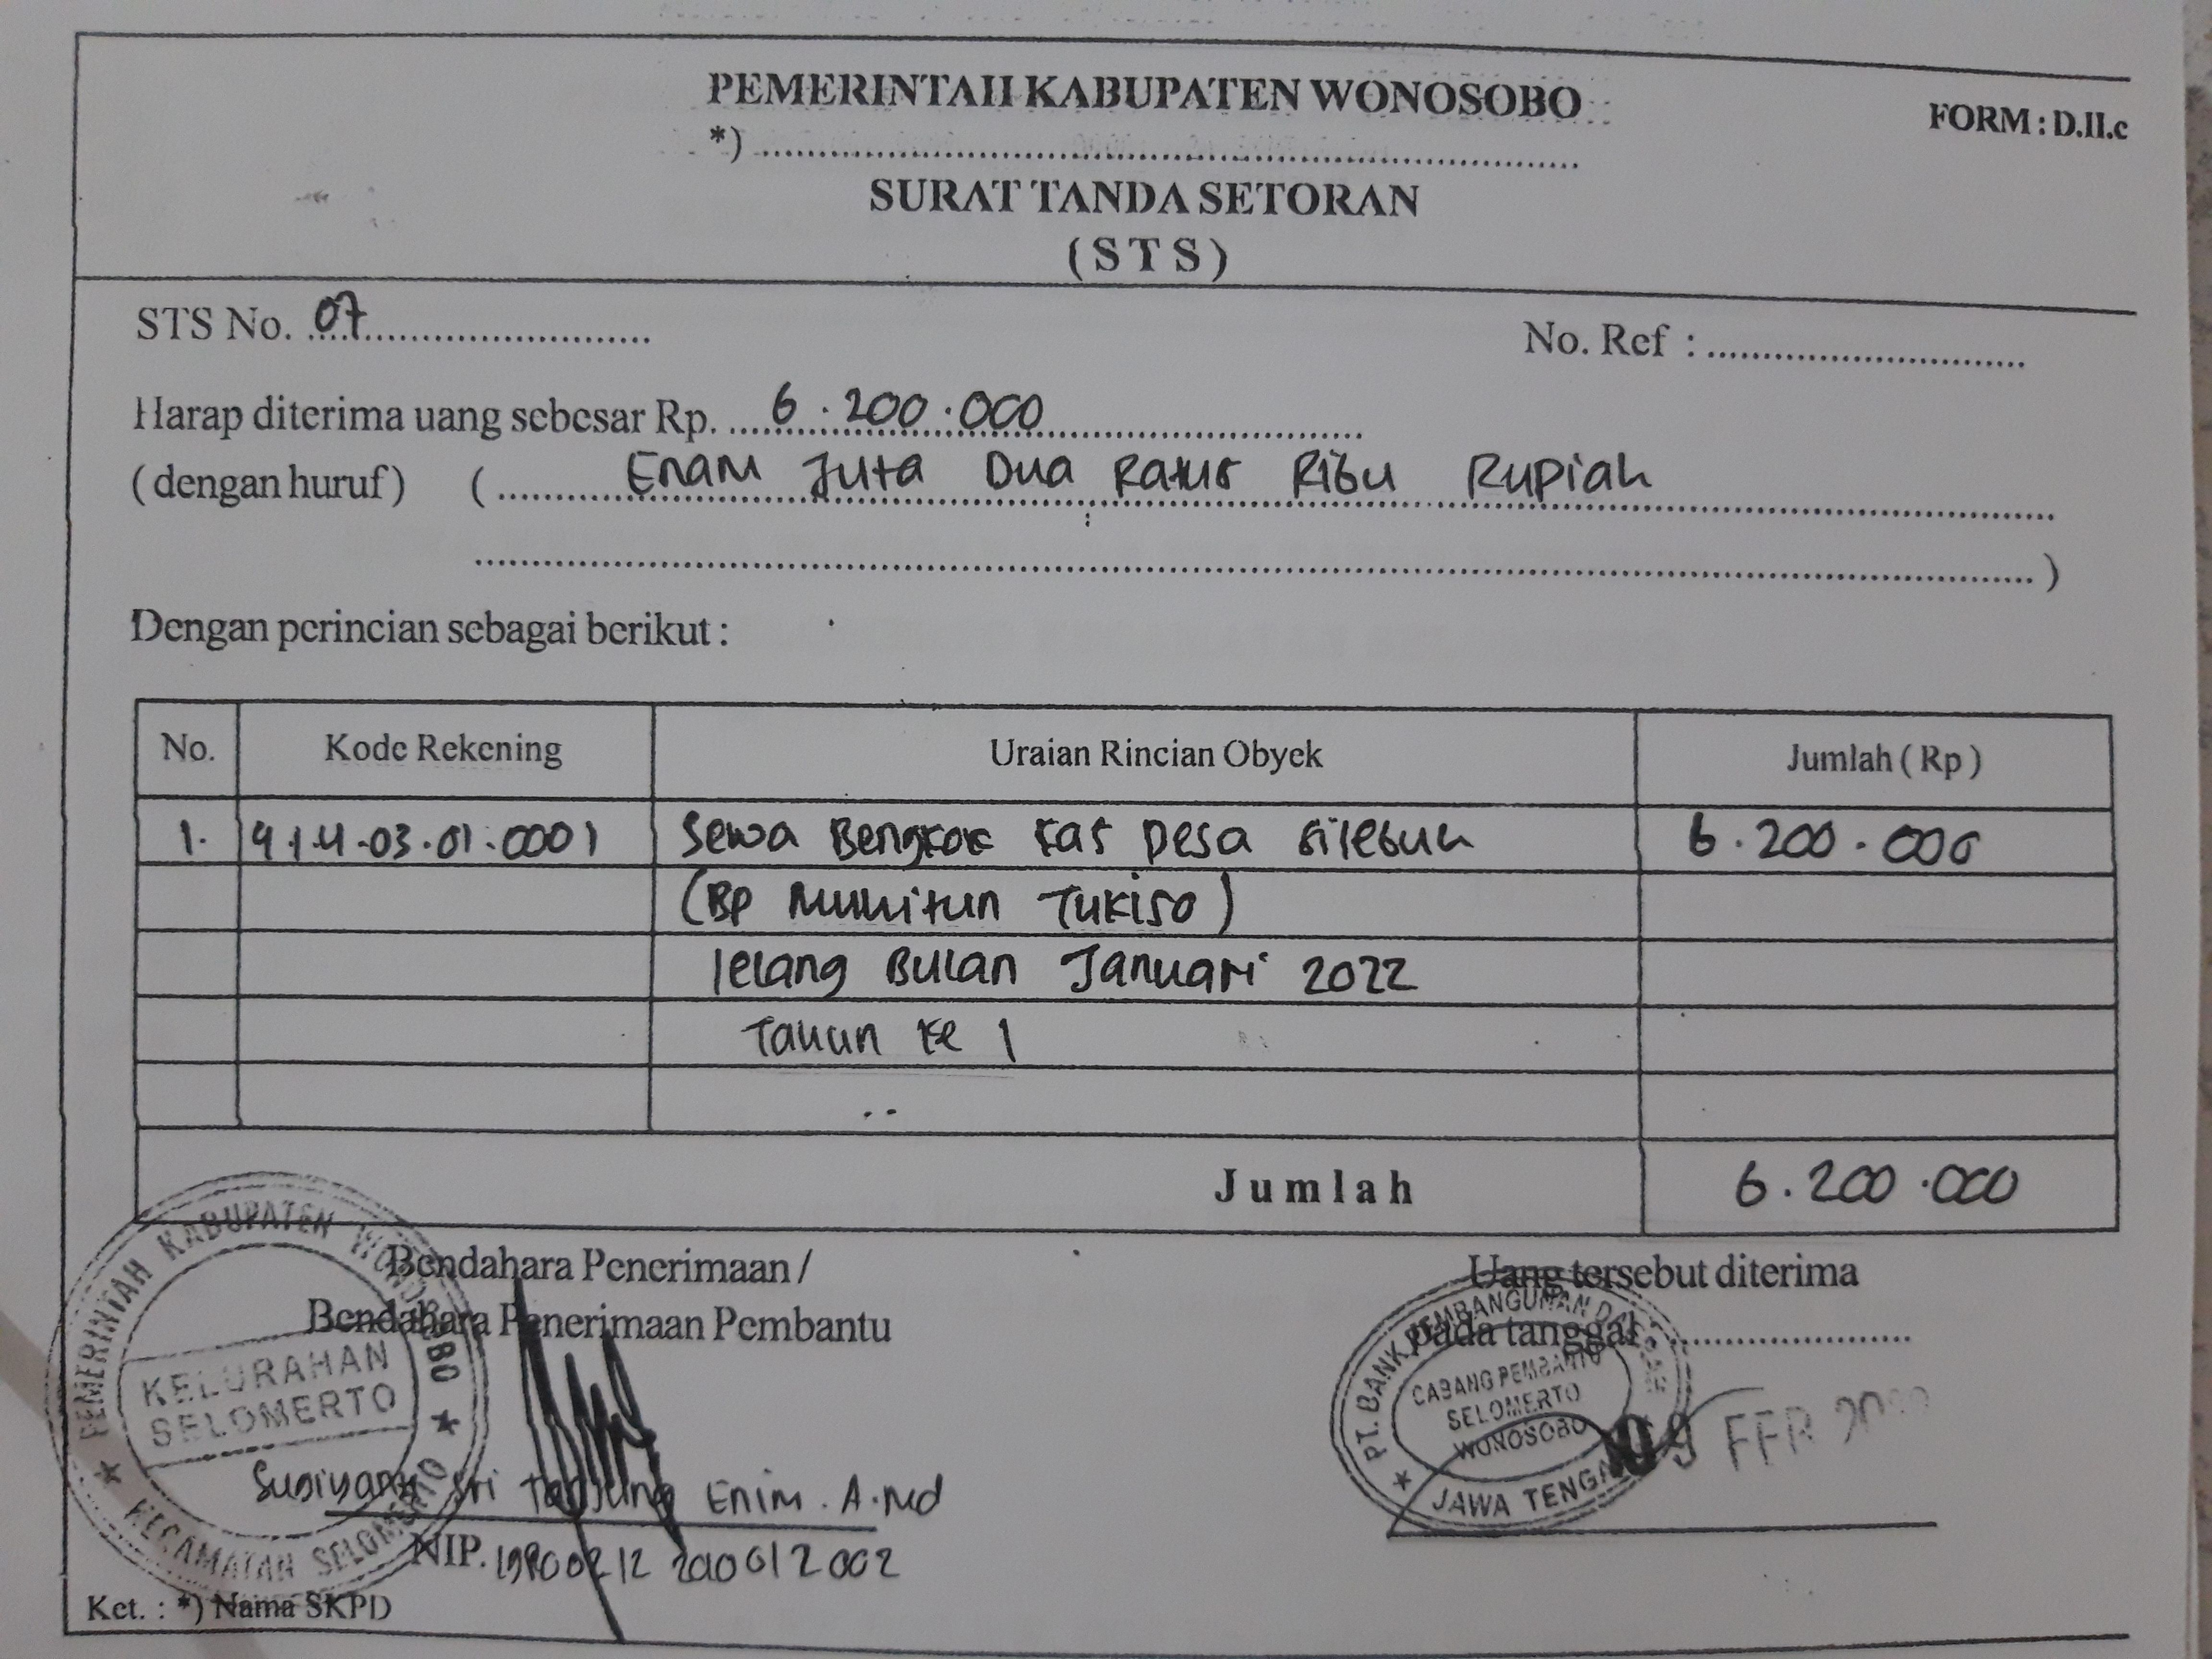 PEMERINTAH KABUPATEN WONOSOBO
FORM : D.II.c
*) ................................................
SURAT TANDA SETORAN
( S T S )
STS No. 07
No. Ref : ................................
Harap diterima uang sebesar Rp. 6.200.000
( dengan huruf ) ( Enam Juta Dua Ratus Ribu Rupiah
................................................ )
Dengan perincian sebagai berikut :
No. Kode Rekening Uraian Rincian Obyek Jumlah ( Rp )
1. 4.1.4.03.01.0001 Sewa Bengkok Kas Desa Silebuh 6.200.000
(Bp Tukiso)
lelang Bulan Januari 2022
Tahun ke 1
Jumlah 6.200.000
Bendahara Penerimaan /
Bendahara Penerimaan Pembantu
PEMERINTAH KABUPATEN WONOSOBO
KELURAHAN
SELOMERTO
KECAMATAN SELOMERTO
Sri Tanjung Enim. A.Md
NIP.
Uang tersebut diterima
pada tanggal ........................
PT. BANK PEMBANGUNAN DAERAH
CABANG PEMBANTU
SELOMERTO
WONOSOBO
JAWA TENGAH
09 FEB
Ket. : *) Nama SKPD